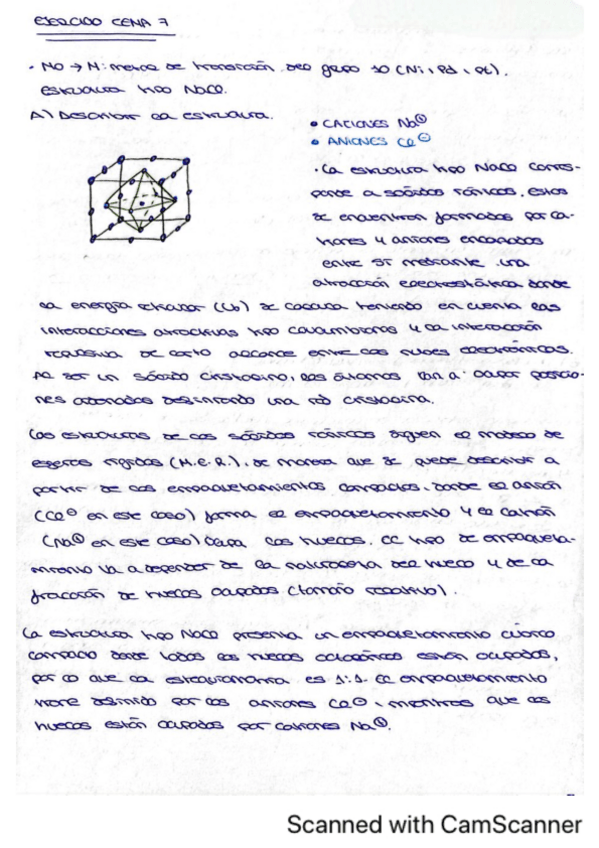 EJERCICIO CENA 7
• NO → Ni: metal de transición del grupo 10 (Ni, Pd, Pt).
estructura tipo NaCl.
A) Describir la estructura.
• CATIONES Na⊕
• ANIONES Cl⊖
• La estructura tipo NaCl corres-
ponde a sólidos iónicos, estos
se encuentran formados por ca-
tiones y aniones enlazados
entre sí mediante una
atracción electrostática donde
la energía reticular (U₀) se calcula teniendo en cuenta las
interacciones atractivas tipo coulombianas y la interacción
repulsiva de corto alcance entre las nubes electrónicas.
Al ser un sólido cristalino, los átomos van a ocupar posicio-
nes ordenadas definiendo una red cristalina.
Las estructuras de los sólidos iónicos siguen el modelo de
esferas rígidas (M.E.R.), de manera que se puede describir a
partir de los empaquetamientos compactos. Donde el anión
(Cl⊖ en este caso) forma el empaquetamiento y el catión
(Na⊕ en este caso) ocupa los huecos. El tipo de empaqueta-
miento va a depender de la naturaleza del hueco y de la
fracción de huecos ocupados (tamaño relativo).
La estructura tipo NaCl presenta un empaquetamiento cúbico
compacto donde todos los huecos octaédricos están ocupados,
por lo que la estequiometría es 1:1. El empaquetamiento
viene definido por los aniones Cl⊖, mientras que los
huecos están ocupados por cationes Na⊕.
Scanned with CamScanner